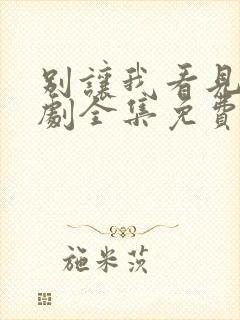 別讓我看見
劇全集免費
施米茨